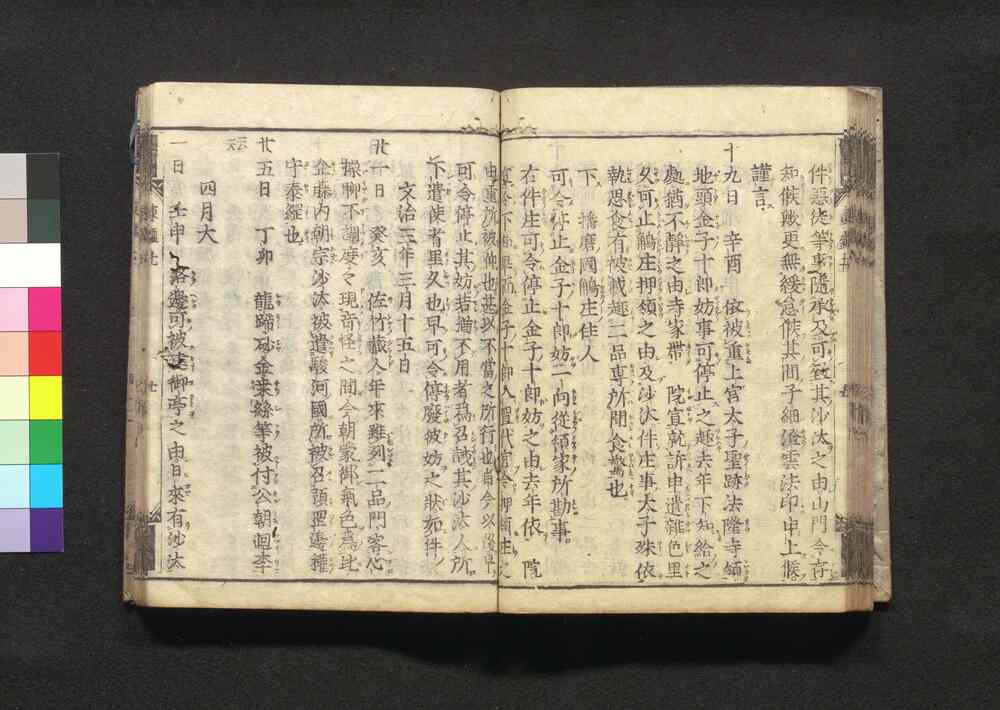 件惡徒等事隨承及可致其沙汰之由山門令存
知候歟更無緩怠候其間子細澄雲法印申上候
謹言
十九日　辛酉　依被重上宮太子聖跡法隆寺領
地頭金子十郎妨事可停止之趣去年下知給之
處猶不靜之由寺家帶　院宣就訴申遣雜色里
久可止鵤庄押領之由及沙汰件庄事太子殊依
執思食有被載趣二品專所聞食驚也
下　播磨國鵤庄住人
可令停止金子十郎妨一向從領家所勘事
右件庄可令停止金子十郎妨之由去年依　院
宣令下知畢而金子十郎入置代官令押領庄之
由重所被仰也甚以不當之所行也自今以後早
可令停止其妨若猶不用者爲召誡其沙汰人所
下遣使者里久也早可令停廢彼妨之狀如件
文治三年三月十五日
廿一日　癸亥　佐竹藏人年來雖列二品門客心
操聊不調度々現奇怪之間今朝蒙御氣色爲比
企藤内朝宗沙汰被遣駿河國所被召預
守泰經也
廿五日　丁卯　龍蹄砂金桑絲等被付公朝廻李
云云
四月大
一日　壬申　洛邊可被建御亭之由日來有沙汰